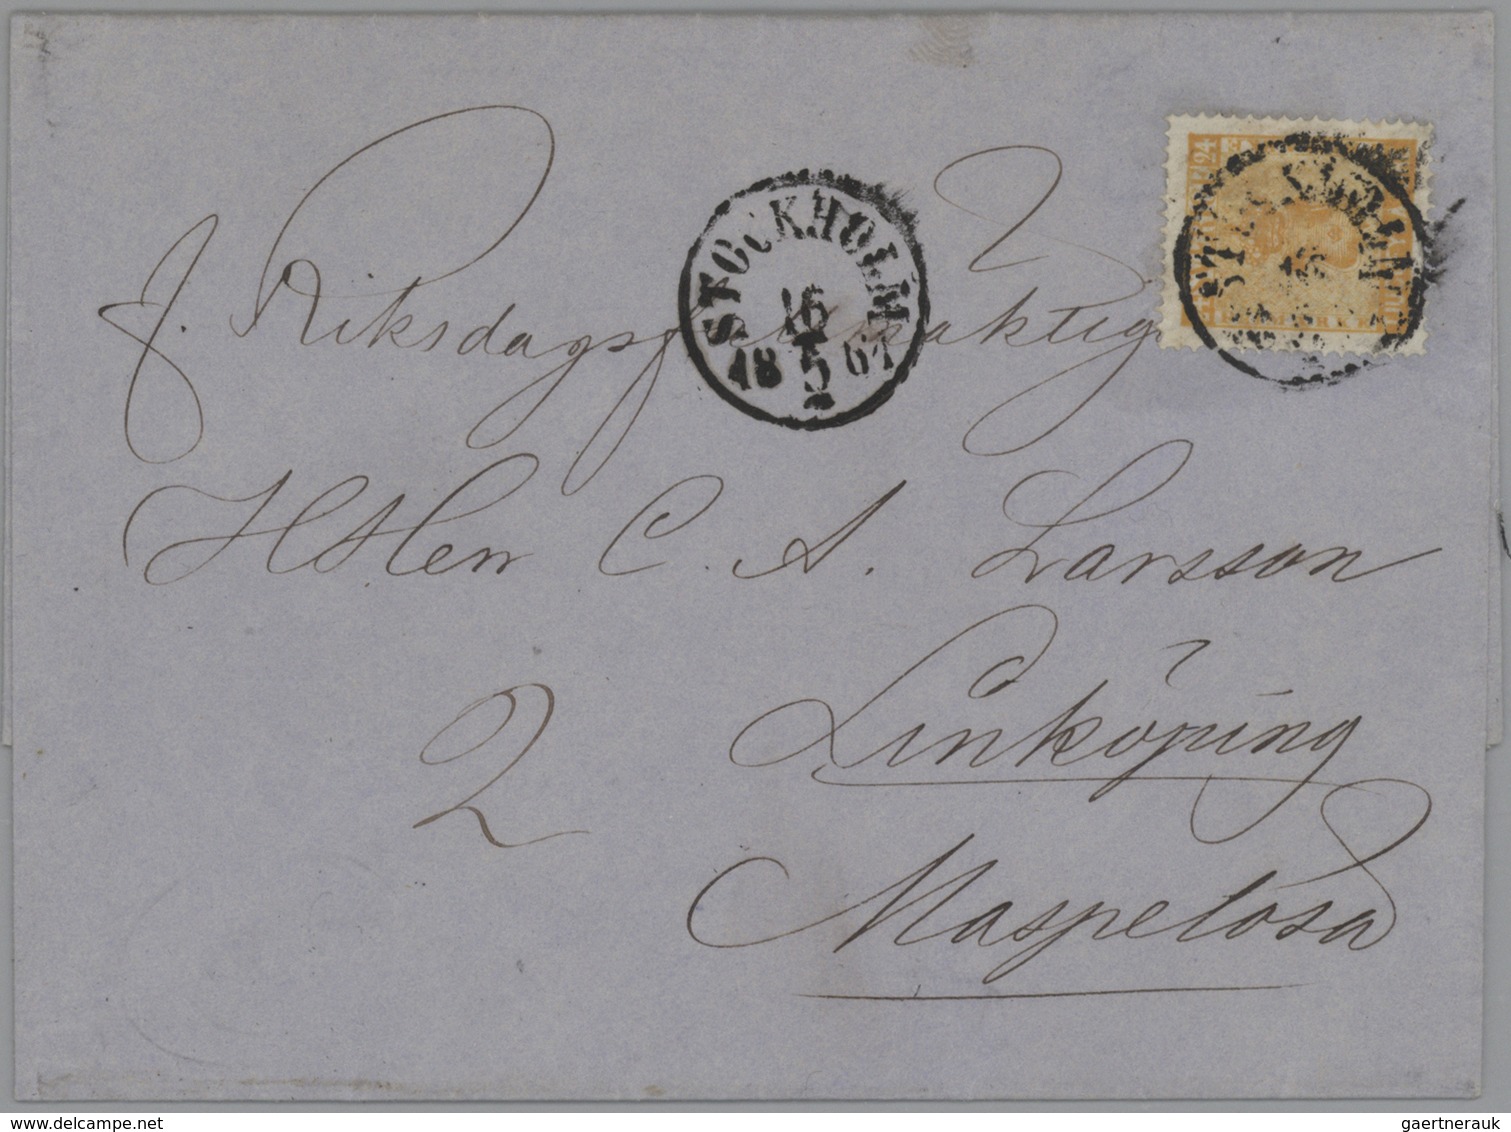 STOCKHOLM
16
5
1861
24
STOCKHOLM
16
f. Riksdagsfullmäktig
HHerr C. A. Larsson
Linköping
2
Maspelösa
gaertnerauk